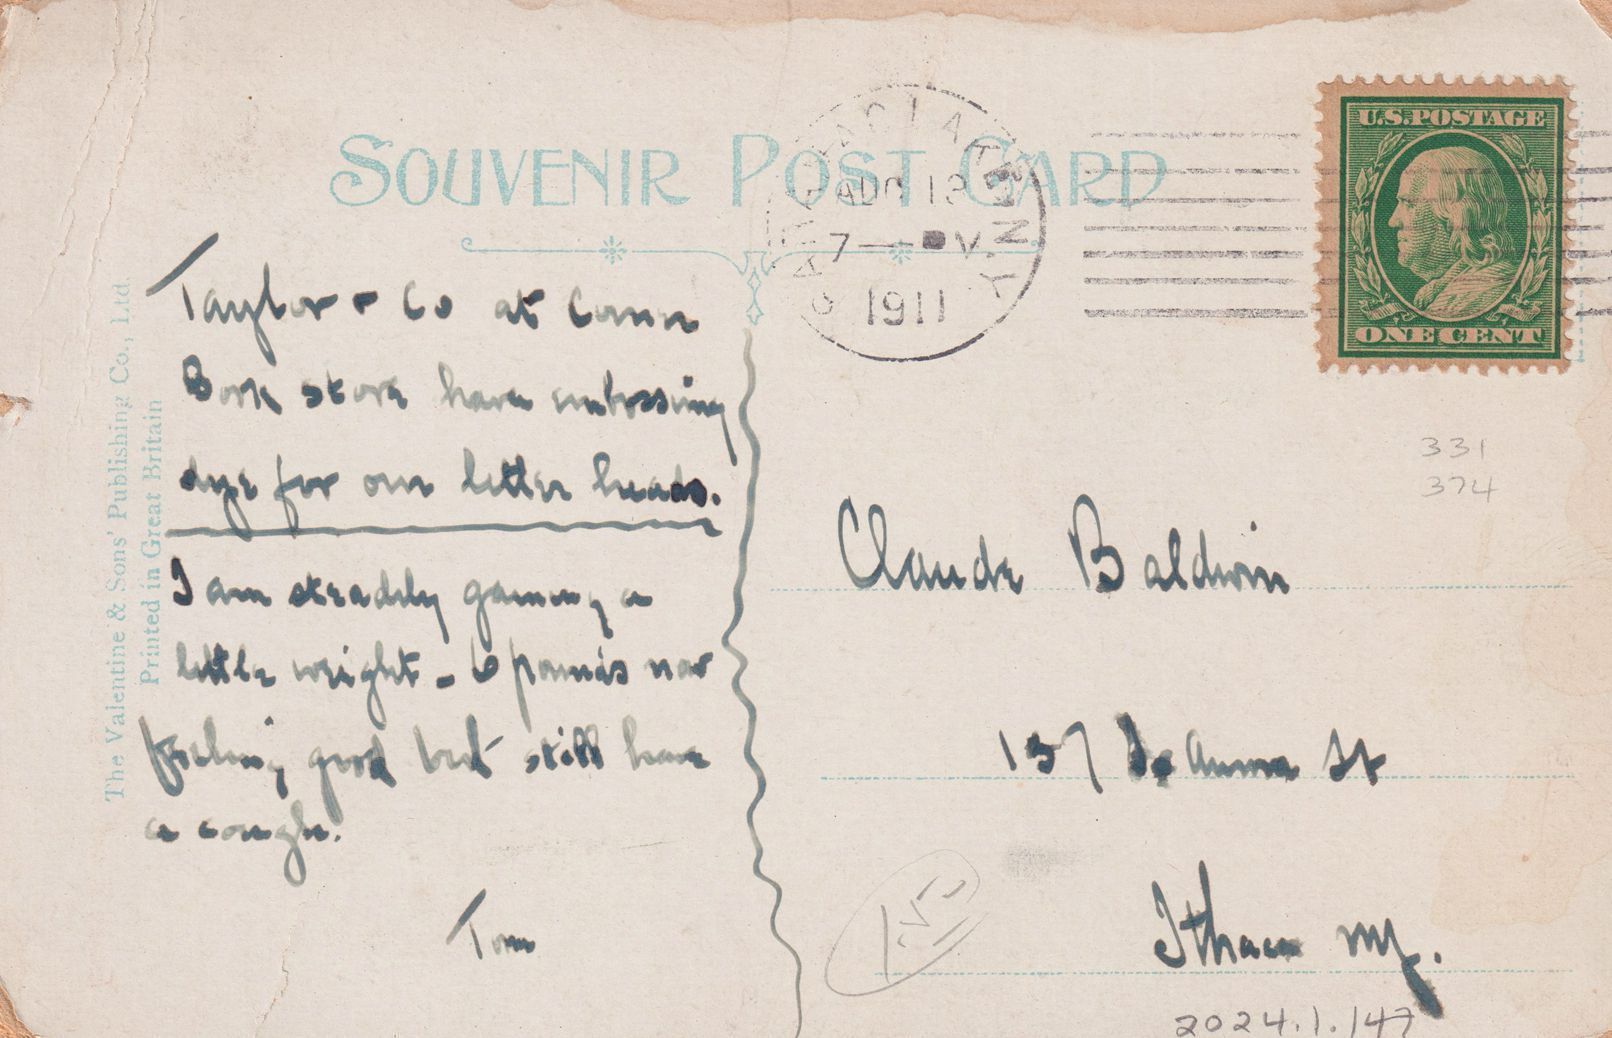 SOUVENIR POST CARD
AUG 18
7—
1911
N.Y.
U.S. POSTAGE
ONE CENT
The Valentine & Sons' Publishing Co., Ltd.
Printed in Great Britain
Taylor & Co at Corner
Book store have embossing
dye for our letter heads.
I am steadily gaining a
little weight - 6 pounds nor
feeling good but still have
a cough.
Tom
331
374
Claude Baldwin
137 St
Ithaca NY.
2024.1.147